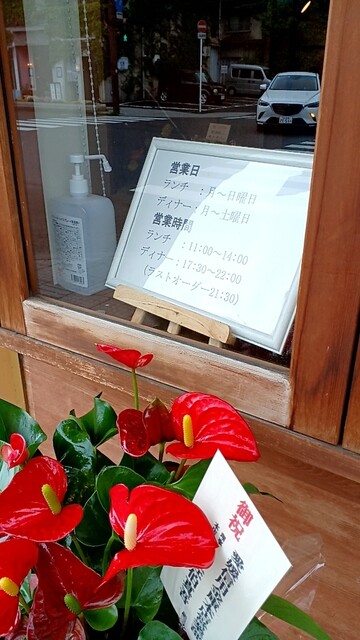 営業日
ランチ　：月～日曜日
ディナー：月～土曜日
営業時間
ランチ　：11:00～14:00
ディナー：17:30～22:00
(ラストオーダー21:30)
御祝